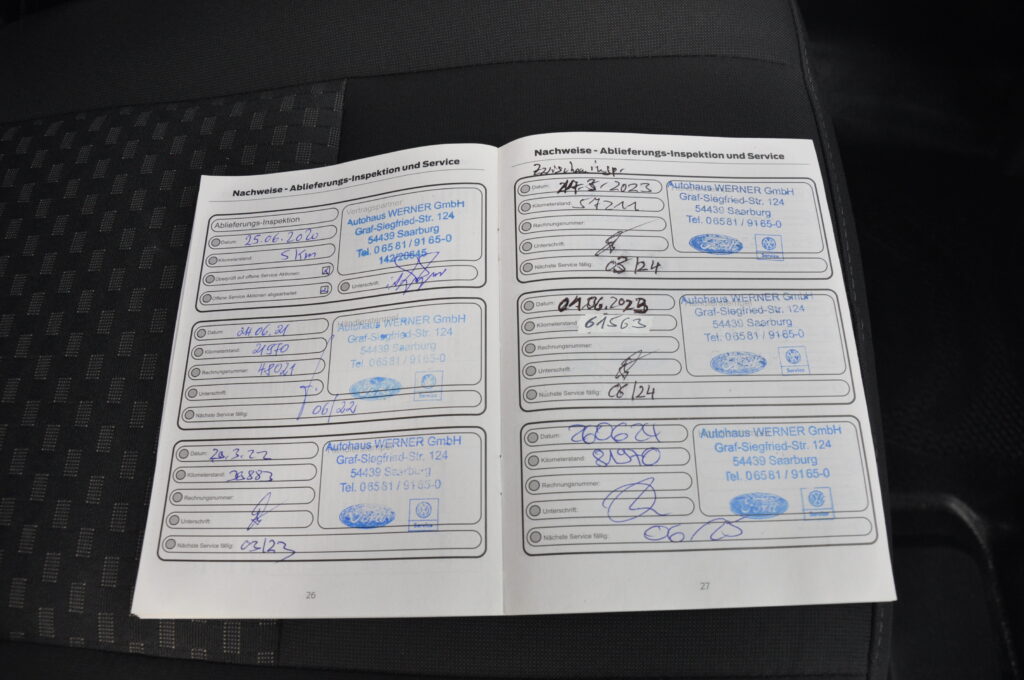 Nachweise - Ablieferungs-Inspektion und Service
Ablieferungs-Inspektion
Datum: 25.06.2020
Kilometerstand: 5 Km
Überprüft auf offene Service Aktionen:
Offene Service Aktionen abgearbeitet:
Vertragspartner
Autohaus WERNER GmbH
Graf-Siegfried-Str. 124
54439 Saarburg
Tel. 0 65 81 / 91 65-0
142/20645
Unterschrift:
Datum: 24.06.21
Kilometerstand: 21970
Rechnungsnummer: 48021
Unterschrift:
Nächste Service fällig: 06/22
Autohaus WERNER GmbH
Graf-Siegfried-Str. 124
54439 Saarburg
Tel. 0 65 81 / 91 65-0
Ford
Service
Datum: 3.22
Kilometerstand: 883
Rechnungsnummer:
Unterschrift:
Nächste Service fällig: 03/23
Autohaus WERNER GmbH
Graf-Siegfried-Str. 124
54439 Saarburg
Tel. 0 65 81 / 91 65-0
Ford
Service
26
Nachweise - Ablieferungs-Inspektion und Service
Datum: 3.2023
Kilometerstand: 57211
Rechnungsnummer:
Unterschrift:
Nächste Service fällig: 03/24
Autohaus WERNER GmbH
Graf-Siegfried-Str. 124
54439 Saarburg
Tel. 0 65 81 / 91 65-0
Ford
Service
Datum: 01.06.2023
Kilometerstand: 61563
Rechnungsnummer:
Unterschrift:
Nächste Service fällig: 06/24
Autohaus WERNER GmbH
Graf-Siegfried-Str. 124
54439 Saarburg
Tel. 0 65 81 / 91 65-0
Ford
Service
Datum: 260624
Kilometerstand: 81970
Rechnungsnummer:
Unterschrift:
Nächste Service fällig: 06/25
Autohaus WERNER GmbH
Graf-Siegfried-Str. 124
54439 Saarburg
Tel. 0 65 81 / 91 65-0
Ford
Service
27